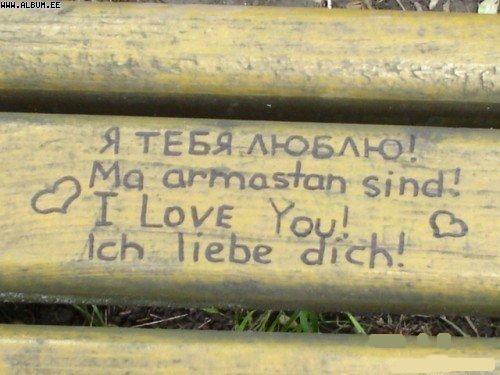 WWW.ALBUM.EE
Я ТЕБЯ ЛЮБЛЮ!
Ma armastan sind!
I LOVE You!
Ich liebe dich!